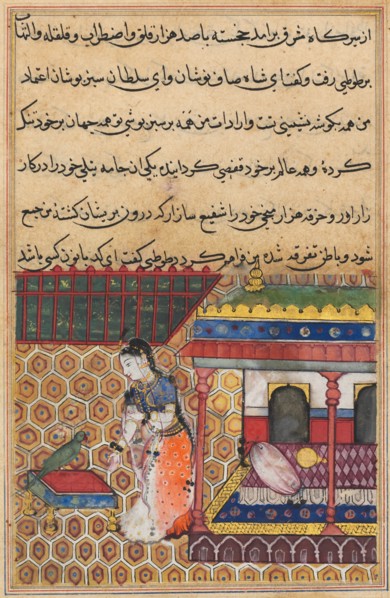 از سرکاه مشرق برامد خجسته باصد هزار قلق و اضطراب و قلقله والتهاب
برطوطی رفت و کفت ای شاه صاف نوشان و ای سلطان سبز پوشان اعتماد
من همه بکوشه نشینی تست و ارادات من همه بر سبز پوشی تو همه جهان بر خود تنک
کرده و همه عالم بر خود قفصی کردانیده یکی ان جامه نیلی خود را در کار
زار اور و خرقه هزار میخی خود را شفیع ساز تا که درون پریشان کشته من جمع
شود و باطن تفرقه شده من فراهم کردد طوطی کفت ای کدبانو کسی باشد